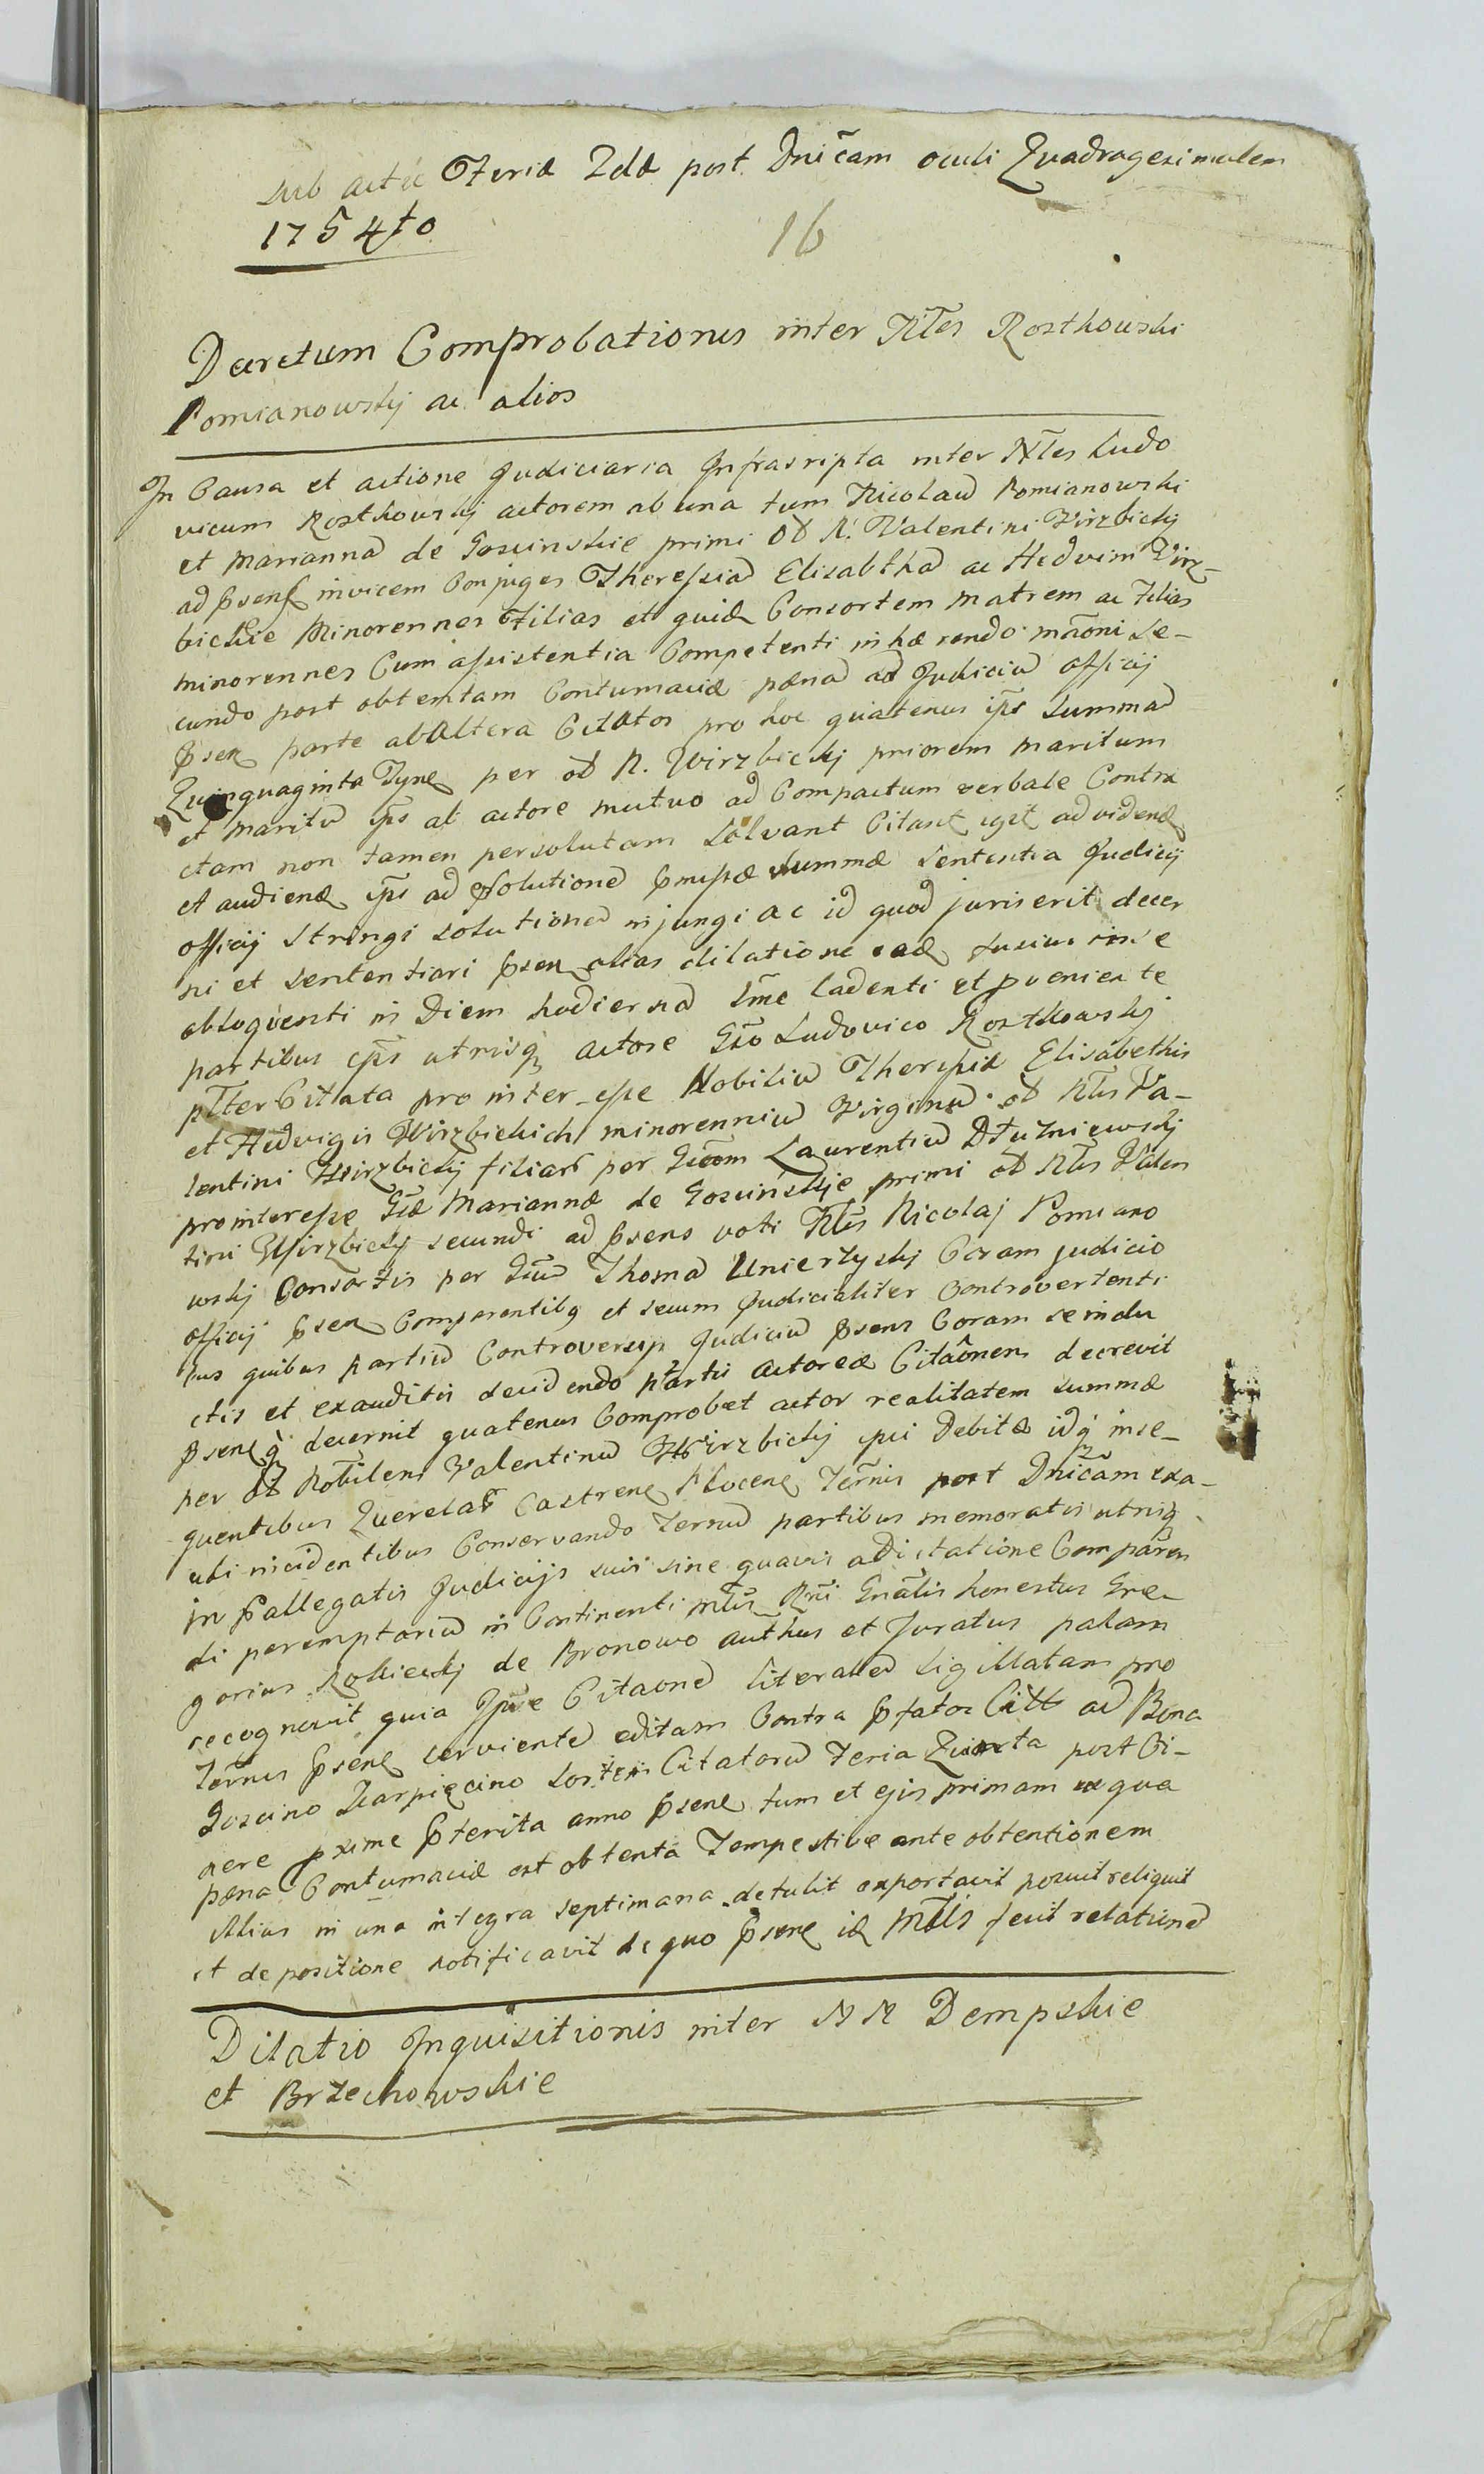 sub actu Feria 2da post Dnicam oculi Quadragesimalem
1754to
16
Decretum Comprobationis inter Nles Rostkowski
Pomianowskÿ ac alios
In Causa et actione Judiciaria Infrascripta inter Nles Ludo
vicum Rostkowskÿ actorem ab una tum Nicolaũ Pomianowski
et Mariannã de Gosciñskie primi Ol N. Valentini Wirzbickÿ
ad p̃sens invicem Conjuges Theressiã Elisabthã ac Hedvim Virz-
bickie Minorennes Filias et quidẽ Consortem Matrem ac Filias
minorennes Cum assistentia Competenti inhærendo mãoni se-
cundo post obtentam Contumaciæ pænã ad Judiciũ officÿ
p̃sen parte ab altera Citatos pro hoc quatenus ip̃i Summã
Quinquaginta Tynf per ol N. Wirzbickÿ priorem maritum
et maritũ ip̃s ab actore mutuo ad Compactum verbale Contra
ctam non tamen persolutam Solvant Citant igit ad videnḑ
et audienḑ ip̃s ad Solutionẽ p̃missæ summæ Sententia Judicÿ
officÿ Stringi solutionẽ injungi ac id quod juris erit decer
ni et sententiari p̃sen alias dilatione eaḑ fusius in se
obloquenti in Diem hodiernã l̃me cadenti et pveniente
partibus ip̃is utrisq actore Gso Ludovico Rostkowskÿ
pl̃ter Citata pro inter-esse Nobiliũ Theressiæ Elisabethis
et Hedvigis Wirzbickich minorenniũ Virginũ ol Nlis Va-
lentini Wirzbickÿ filiar̃ per Gsom Laurentiũ Dłużniewskÿ
pro interesse Gsæ Mariannæ de Gosciñskie primi ol Nlis Valen
tini Wirzbickÿ secundi ad p̃sens voti Nlis Nicolaj Pomiano
wskÿ Consortis per Gsũ Thomã Unierzyskÿ Coram judicio
officÿ p̃sen Comparentibg et secum Judicialiter Controvertenti
bus quibus partiũ Controversÿs Judiciũ p̃sens Coram se indu
ctis et exauditis decidendo partis Actoreæ Citãonem decrevit
p̃senq decernit quatenus Comprobet actor realitatem summæ
per ol Nobilem Valentinũ Wirzbickÿ ipsi Debitæ idq in se-
quentibus Querelar̃ Castrenḑ Plocenḑ Termis post Dnicãm exa-
udi incidentibus Conservando Termũ partibus memoratis utrisq
in p̃allegatis Judicÿs suis sine quavis adcitatione Comparen
di peremptoriũ in Continenti Mtis Rni Gnãlis honestus Gre-
gorius Rokickÿ de Bronowo authus et Juratus palam
recognovit quia Ip̃se Citãonẽ literalẽ Sigillatam pro
Termis p̃senḑ servientẽ editam Contra p̃fatos Citt̃ ad Bona
Goscino Karpięcino Sortem Citatorũ Feria Quinta post Ci-
nere pxime p̃terita anno p̃senḑ tum et ejus primam ex qua
pæna Contumaciæ est obtenta Tempestive ante obtentionem
illius in una integra septimana detulit exportavit posuit reliquit
et de positione notificavit de quo p̃senḑ iḑ Mtis fecit relationẽ
Dilatio Inquisitionis inter NN Dempskie
et Brzechowskie